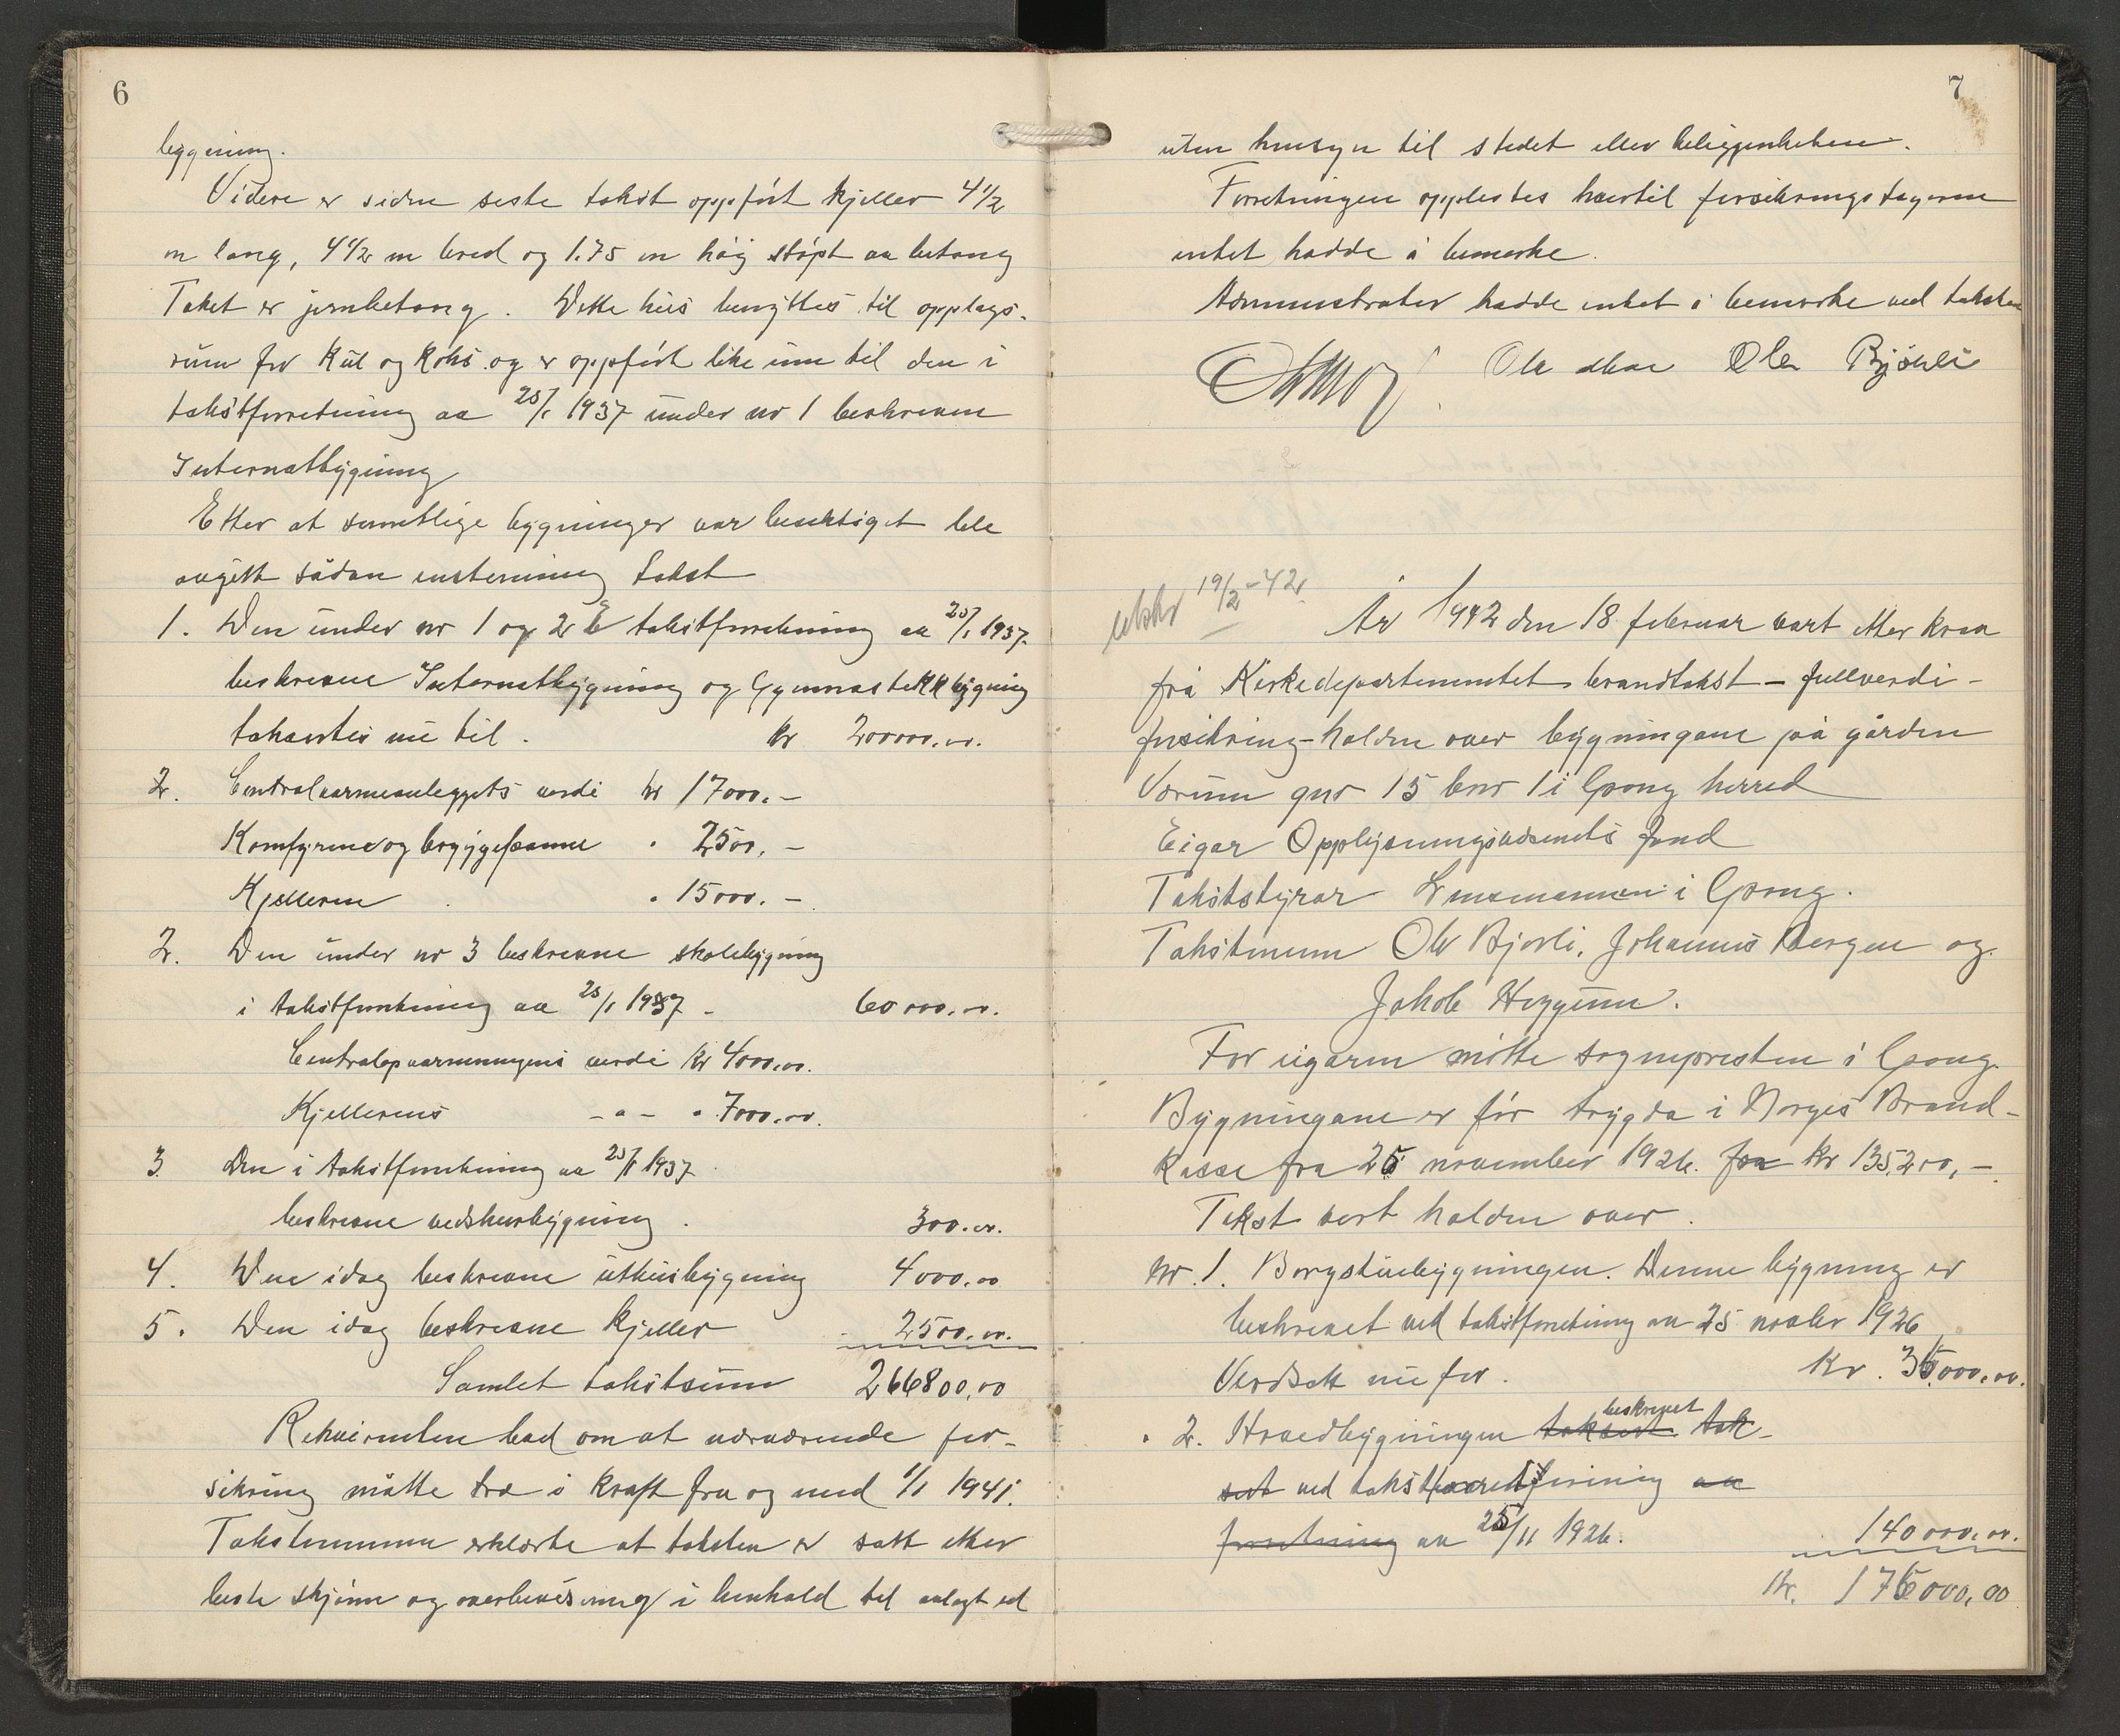 6
bygning.
Videre er siden siste takst oppført kjeller 4 1/2
m lang, 4 1/2 m bred og 1.75 m høg støpt av betong
Taket er jernbetong. Dette hus benyttes til opplags-
rum for kul og koks og er oppført like inn til den i
takstforretning av 25/1 1937 under nr 1 beskrevne
Internatbygning
Etter at samtlige bygninger var besiktiget ble
avgitt sådan enstemmig takst
1. Den under nr 1 og 2 i takstforretning av 25/1 1937
beskrevne Internatbygning og Gymnastikkbygning
taksertes nu til . kr 200000.00.
2. Centralvarmeanleggets verdi kr 17000.-
Komfyrene og bryggepanne " 2500.-
Kjelleren " 15000.-
2. Den under nr 3 beskrevne skolebygning
i takstforretning av 25/1 1937 - 60000.00.
Centralopvarmningens verdi kr 4000.00.
Kjellerens -"- " 7000.00.
3. Den i takstforretning av 25/1 1937
beskrevne vedskurbygning . 300.00.
4. Den idag beskrevne uthusbygning 4000.00
5. Den idag beskrevne kjeller 2500.00.
Samlet takstsum 266800,00
Rekvirenten bad om at nærværende for-
sikring måtte tre i kraft fra og med 1/1 1941.
Takstmennene erklærte at taksten er satt etter
beste skjønn og overbevisning i henhold til avlagt ed
7
uten hensyn til stedet eller beliggenheten.
Forretningen opplestes hvortil forsikringstageren
intet hadde å bemerke.
Administrator hadde intet å bemerke ved taksten
Ola Bjørli
utskr 19/2-42.
År 1942 den 18 februar vart etter krav
frå Kirkedepartementet brandtakst - fullverdi-
forsikring - halden over bygningane på gården
Værum gnr 15 bnr 1 i Grong herred
Eigar Opplysningsvesenets fond
Takststyrar Lensmannen i Grong.
Takstmenn Ole Bjørli, Johannes Bergen og
Jakob Heggum.
For eigaren møtte sognepresten i Grong.
Bygningane er før trygda i Norges Brand-
kasse fra 25 november 1926. for kr 135,200,-
Takst vert halden over .
Nr. 1. Borgstuebygningen. Denne bygning er
beskrevet ved takstforretning av 25 novbr 1926
Verdsett nu for . Kr. 35.000,00.
" 2. Hovedbygningen taksert beskrevet tak-
sert ved takstforretning av
forretning av 25/11 1926. 140000.00.
Kr. 175000,00